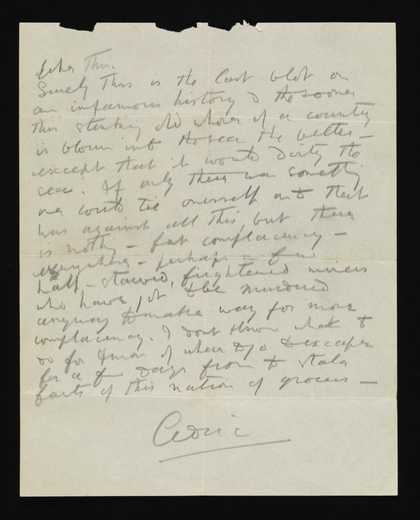 after this.
Surely this is the last blot on
an infamous history & the sooner
this stinking old whore of a country
is blown into the sea the better –
except that it would dirty the
sea. If only there was something
one could tie oneself on to that
was against all this but there
is nothing – fat complacency –
everywhere – perhaps a few
half-starved, frightened miners
who have to be murdered
anyway to make way for more
complacency. I dont know what to
do for or where to go to escape
for a few days from the stale
farts of this nation of grocers –
Cedric